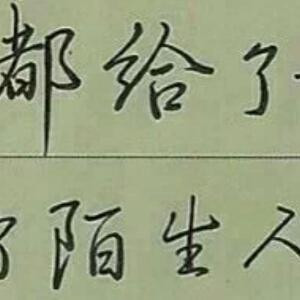 都给了
陌生人